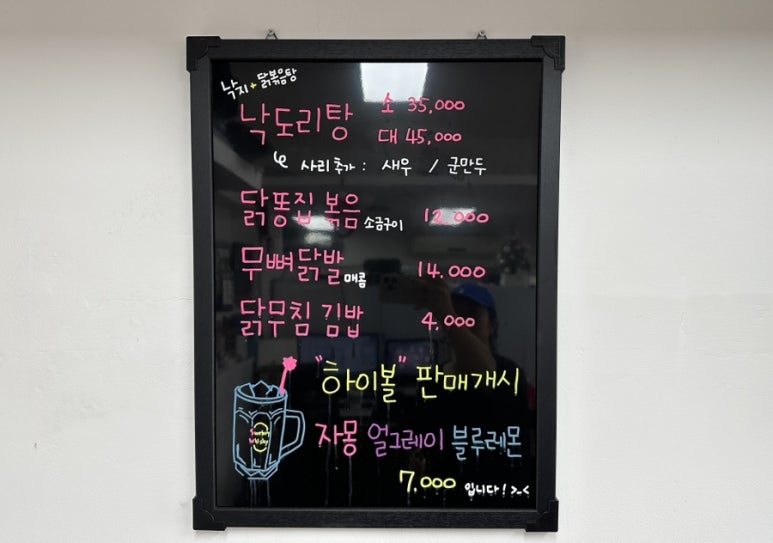 낙지+닭볶음탕
낙도리탕 소 35,000
대 45,000
사리추가 : 새우 / 군만두
닭똥집 볶음 소금구이 12,000
무뼈닭발 매콤 14.000
닭무침 김밥 4,000
"하이볼" 판매개시
자몽 얼그레이 블루레몬
7.000 입니다! >_<